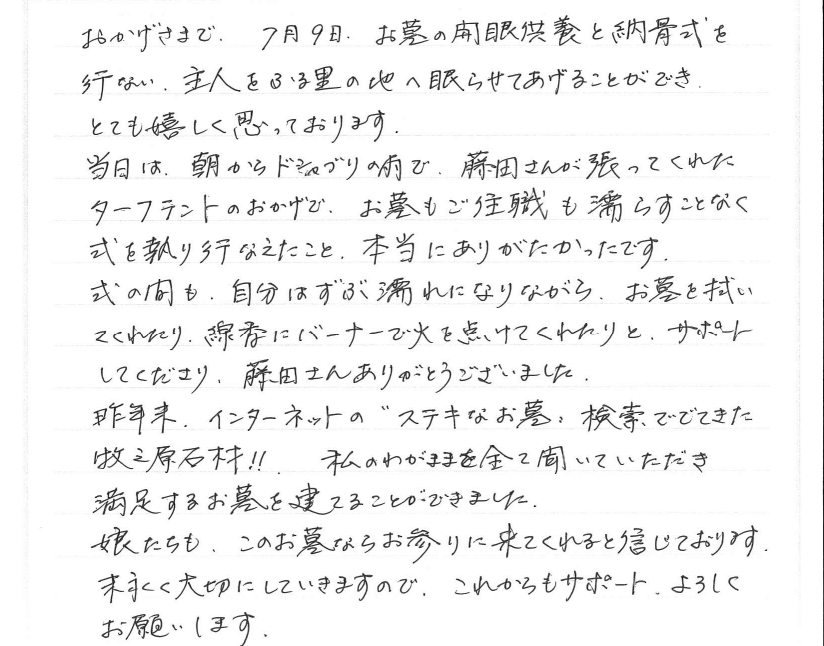 おかげさまで、7月9日、お墓の開眼供養と納骨式を
行ない、主人をふる里の地へ眠らせてあげることができ、
とても嬉しく思っております。
当日は、朝からドシャブリの雨で、藤田さんが張ってくれた
ターフテントのおかげで、お墓もご住職も濡らすことなく
式を執り行なえたこと、本当にありがたかったです。
式の間も、自分はずぶ濡れになりながら、お墓を拭い
てくれたり、線香にバーナーで火を点けてくれたりと、サポート
してくださり、藤田さんありがとうございました。
昨年末、インターネットの〝ステキなお墓〟検索ででてきた
牧之原石材!! 私のわがままを全て聞いていただき
満足するお墓を建てることができました。
娘たちも、このお墓ならお参りに来てくれると信じております。
末永く大切にしていきますので、これからもサポート、よろしく
お願いします。